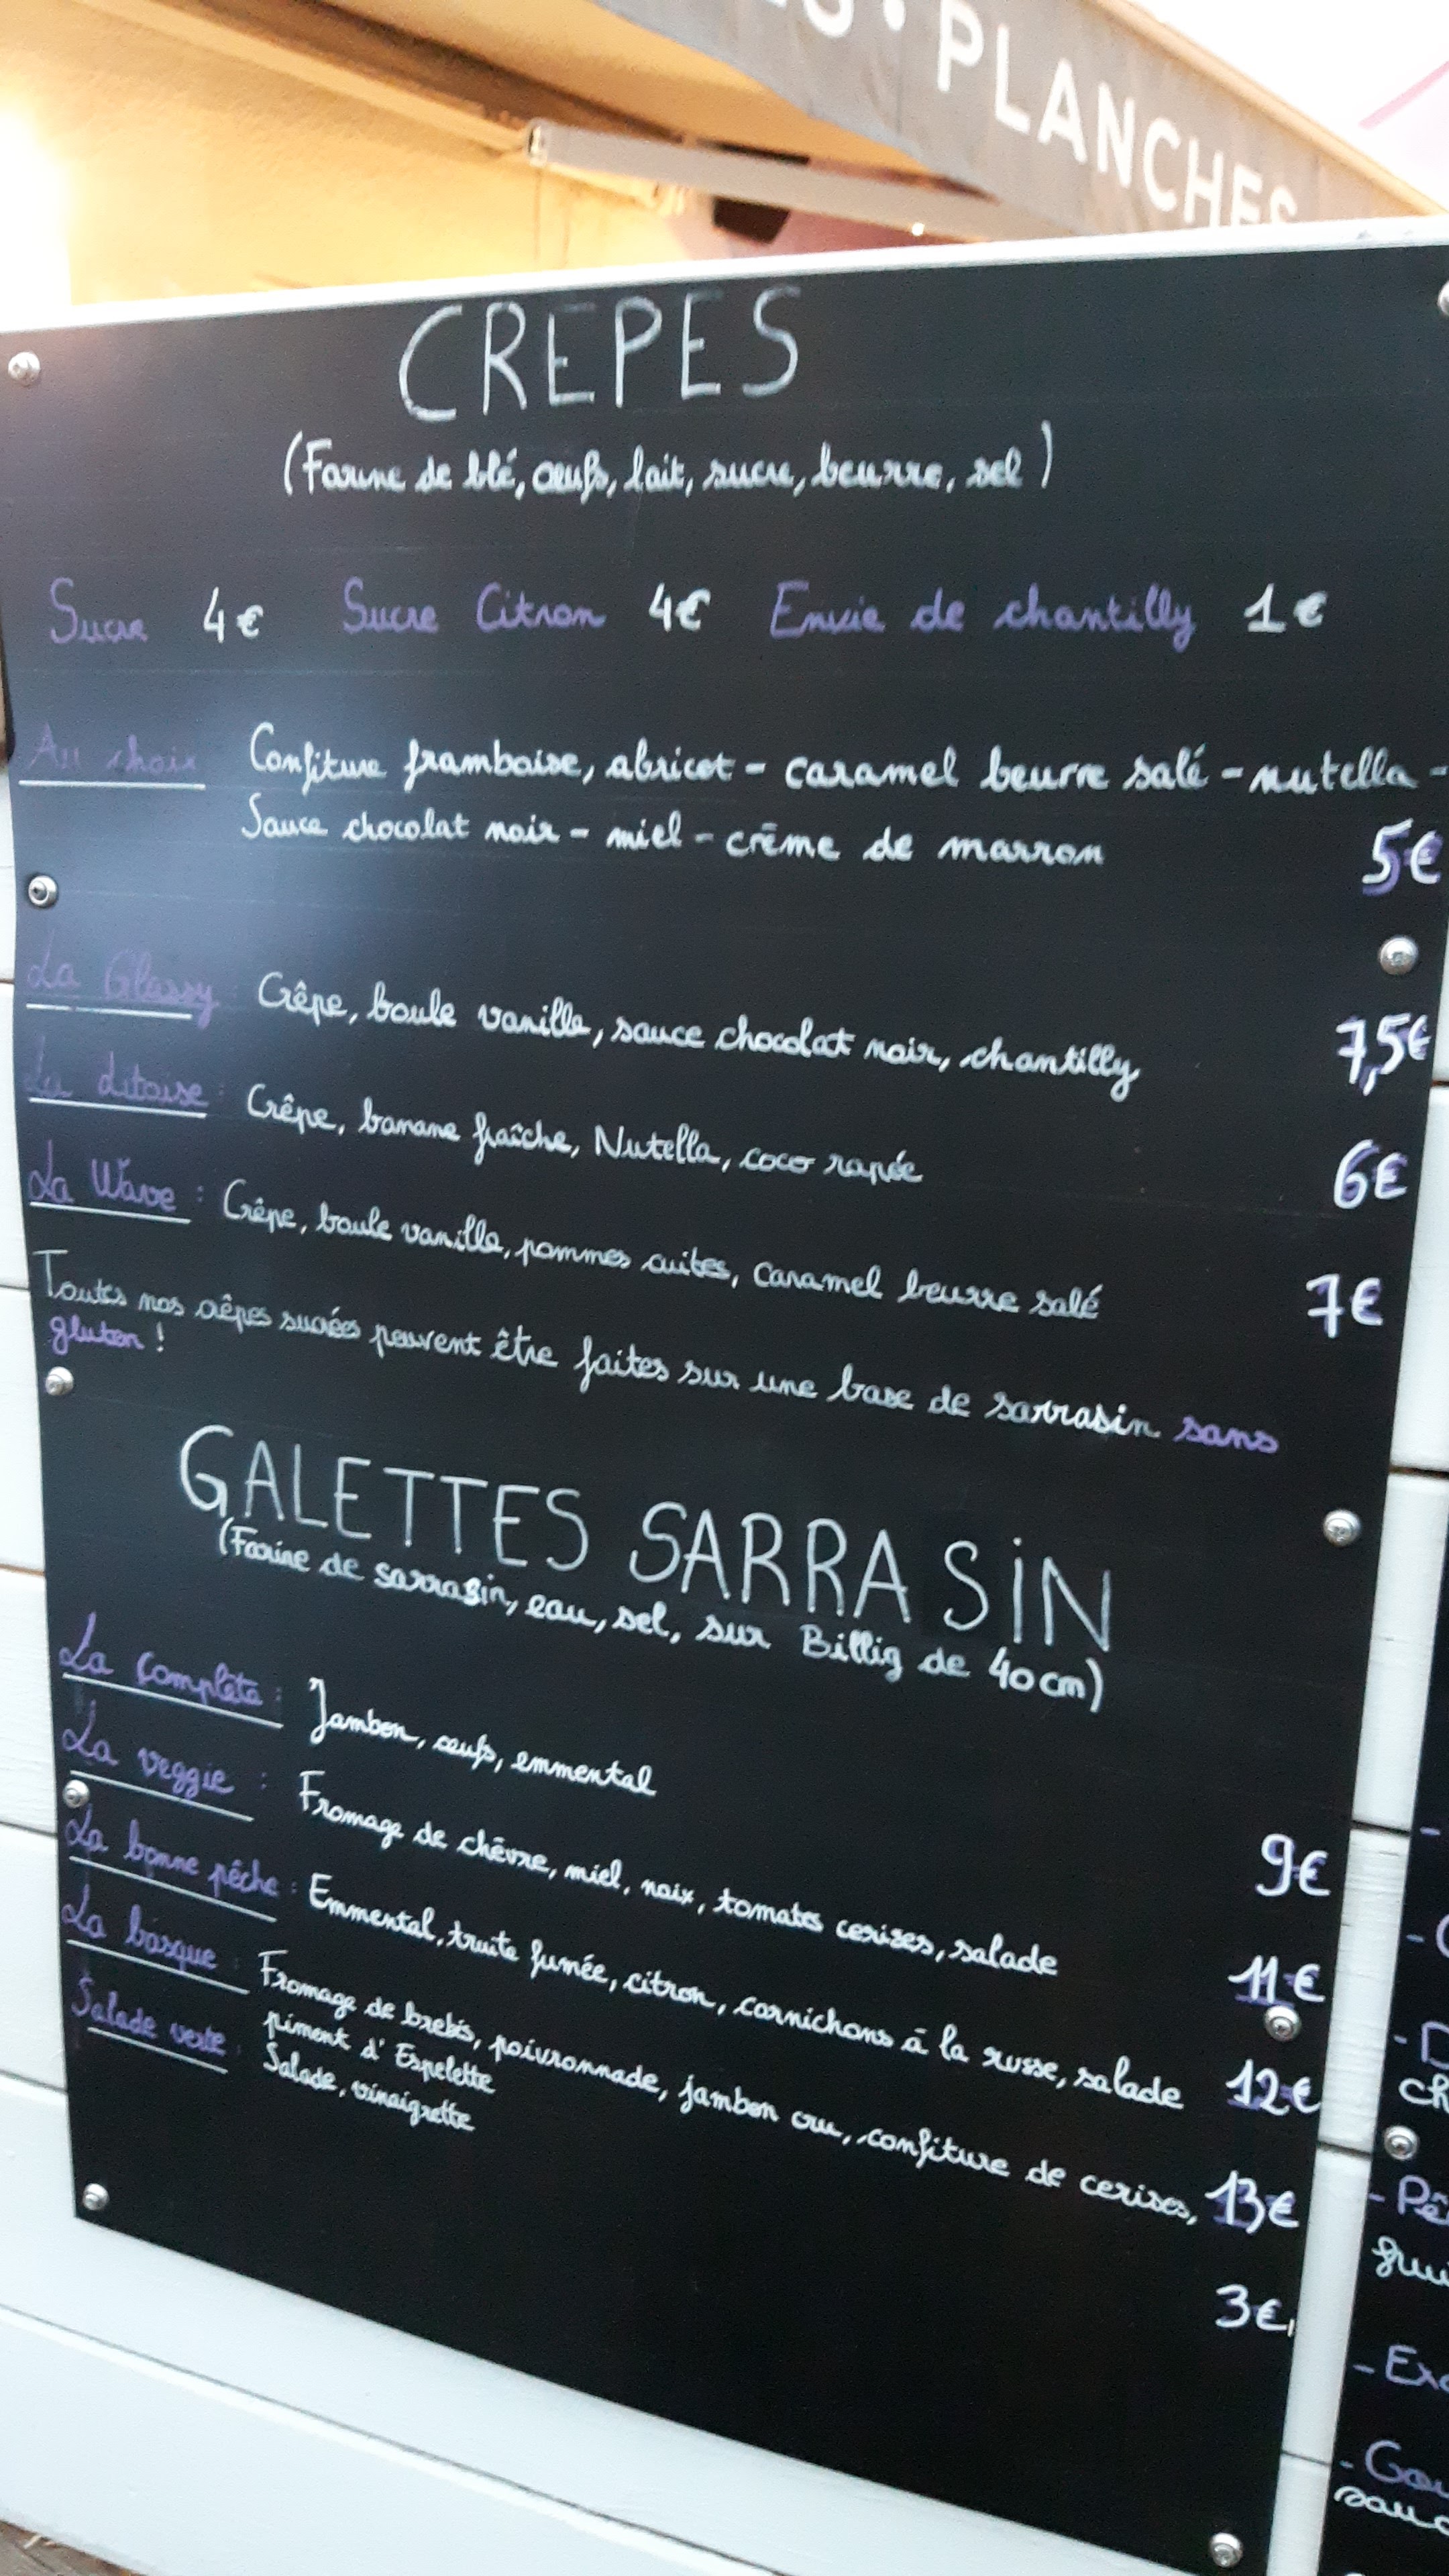 S • PLANCHES
CREPES
(Farine de blé, œufs, lait, sucre, beurre, sel)
Sucre 4€ Sucre Citron 4€ Envie de chantilly 1€
Au choix Confiture framboise, abricot - caramel beurre salé - nutella -
Sauce chocolat noir - miel - crème de marron 5€
La Glassy : Crêpe, boule vanille, sauce chocolat noir, chantilly 7,5€
La Litoise : Crêpe, banane fraîche, Nutella, coco rapée 6€
La Wave : Crêpe, boule vanille, pommes cuites, caramel beurre salé 7€
Toutes nos crêpes sucrées peuvent être faites sur une base de sarrasin sans
gluten !
GALETTES SARRASiN
(Farine de sarrasin, eau, sel, sur Billig de 40cm)
La Complète : Jambon, œufs, emmental 9€
La veggie : Fromage de chèvre, miel, noix, tomates cerises, salade 11€
La bonne pêche : Emmental, truite fumée, citron, cornichons à la russe, salade 12€
La basque : Fromage de brebis, poivronnade, jambon cru, confiture de cerises, 13€
piment d'Espelette
Salade verte : Salade, vinaigrette 3€
- Pê
- Exo